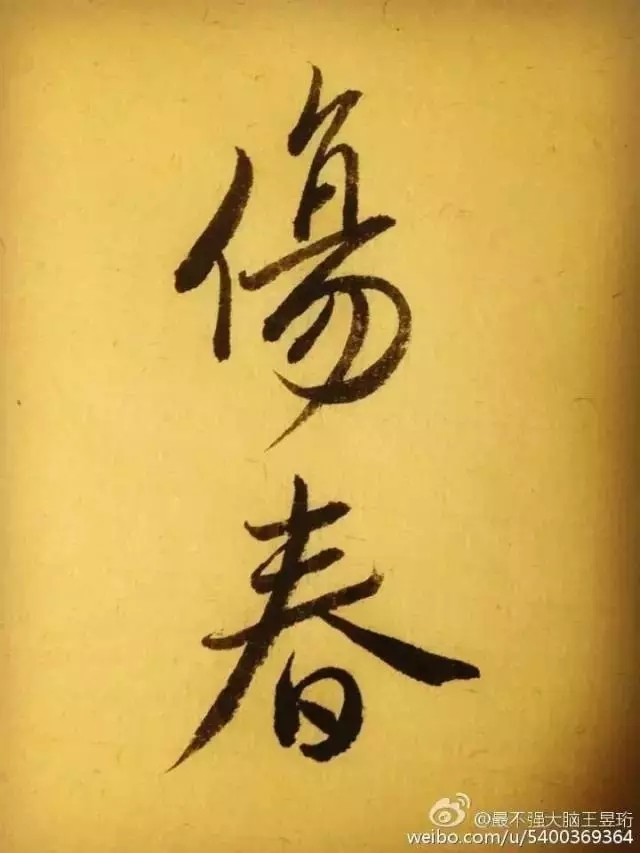 傷
春
@最不强大脑王昱珩
weibo.com/u/5400369364